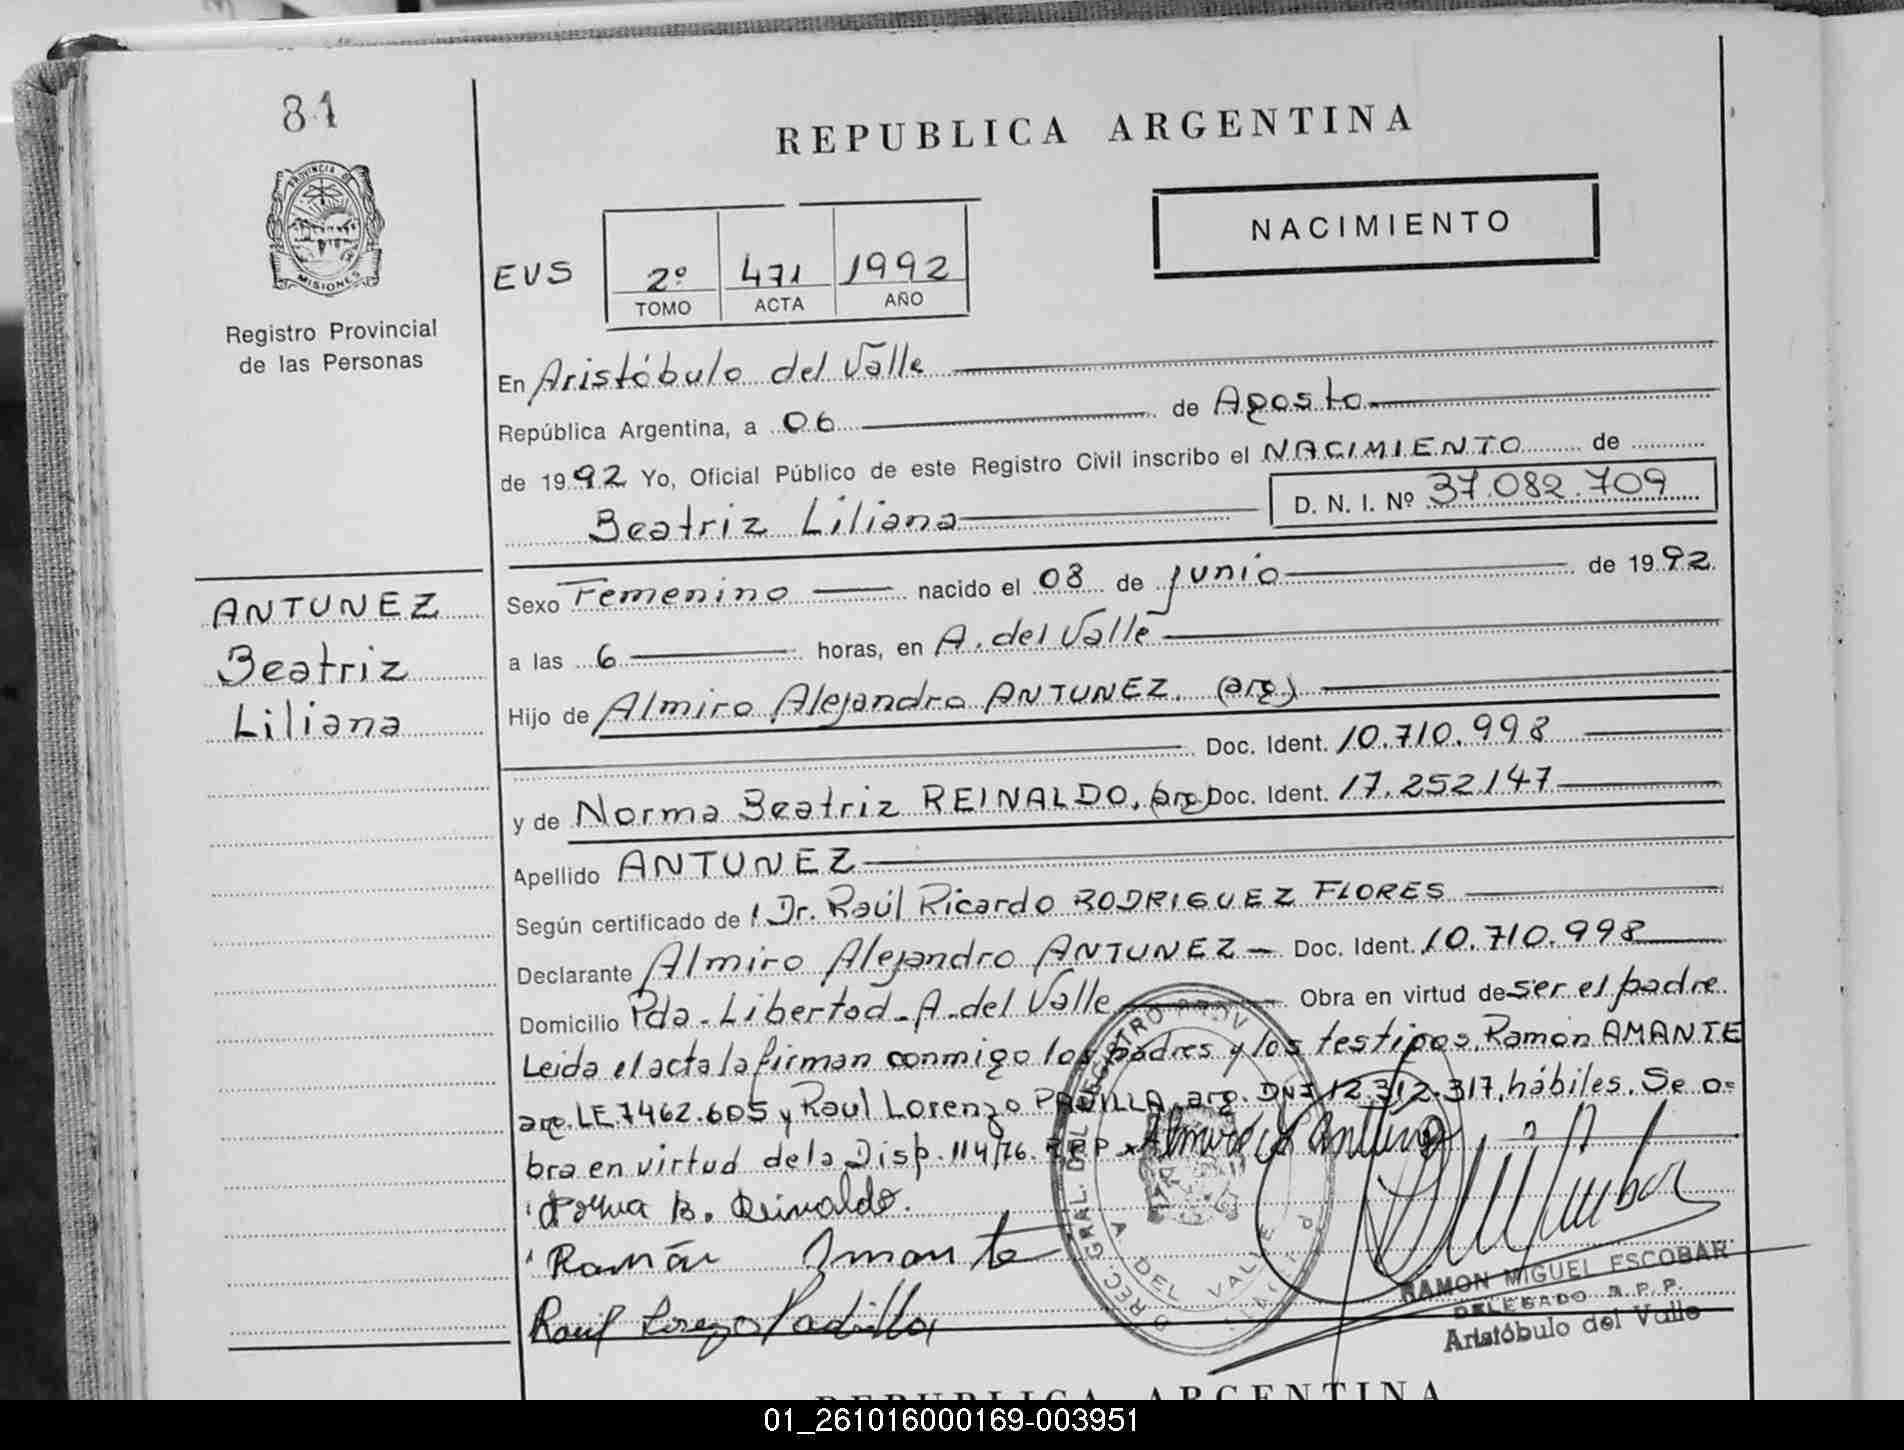 81
PROVINCIA DE
MISIONES
Registro Provincial
de las Personas
REPUBLICA ARGENTINA
NACIMIENTO
EVS
2º 471 1992
TOMO ACTA AÑO
En Aristóbulo del Valle
República Argentina, a 06 de Agosto
de 1992 Yo, Oficial Público de este Registro Civil inscribo el NACIMIENTO de
Beatriz Liliana D. N. I. Nº 37.082.709
ANTUNEZ
Beatriz
Liliana
Sexo Femenino nacido el 08 de junio de 1992
a las 6 horas, en A. del Valle
Hijo de Almiro Alejandro ANTUNEZ. (arg.)
Doc. Ident. 10.710.998
y de Norma Beatriz REINALDO, (arg) Doc. Ident. 17.252.147
Apellido ANTUNEZ
Según certificado de Dr. Raúl Ricardo RODRIGUEZ FLORES
Declarante Almiro Alejandro ANTUNEZ - Doc. Ident. 10.710.998
Domicilio Pda. Libertad - A. del Valle Obra en virtud de ser el padre
Leída el acta la firman conmigo los padres y los testigos, Ramón AMANTE
arg. LE.7462.605 y Raul Lorenzo PADILLA, arg. DNI 12.312.317, hábiles. Se o=
bra en virtud de la Disp. 114/76. RPP x
Norma B. Reinaldo.
Ramón Amante
Raúl Lorenzo Padilla
RAMON MIGUEL ESCOBAR
DELEGADO R.P.P.
Aristóbulo del Valle
REPUBLICA ARGENTINA
01_261016000169-003951